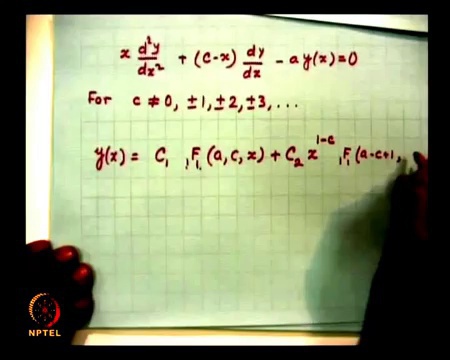 x d²y/dx² + (c-x) dy/dx - a y(x) = 0
For c ≠ 0, ±1, ±2, ±3, ...
y(x) = C₁ ₁F₁(a, c, x) + C₂ x^{1-c} ₁F₁(a-c+1,
NPTEL